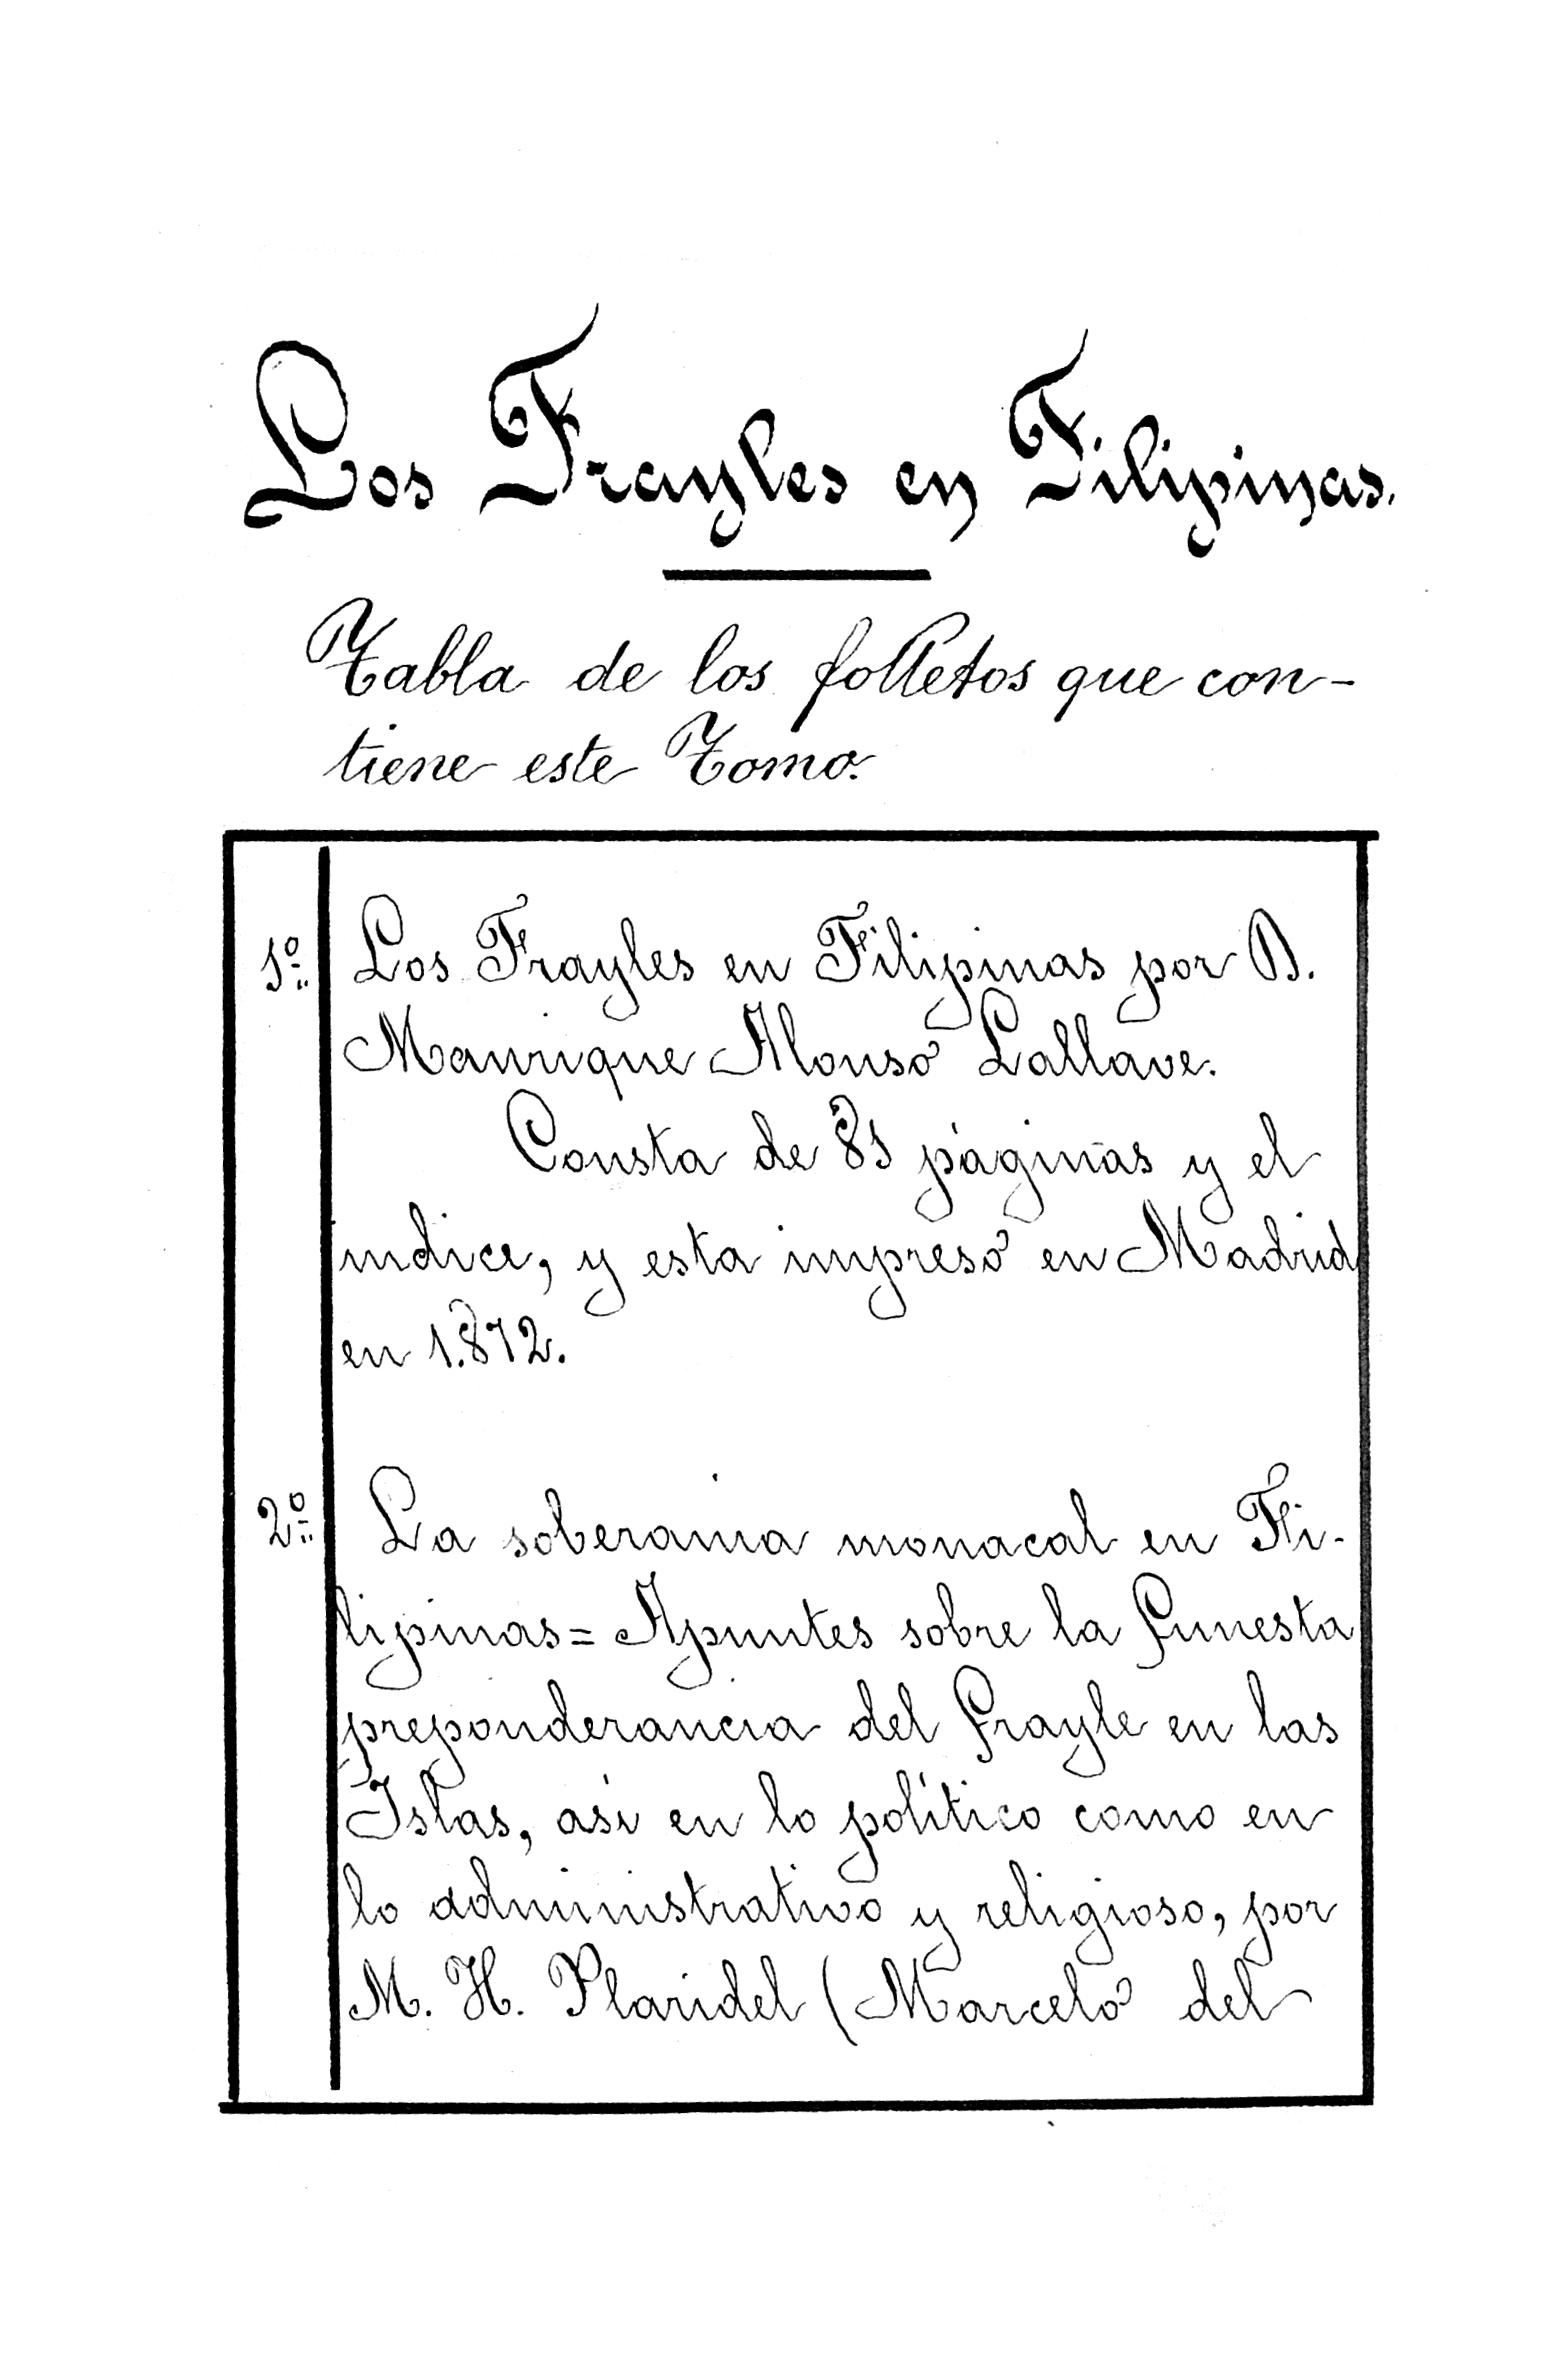 Los Frayles en Filipinas.
Tabla de los folletos que con-
tiene este Tomo.
1º Los Frayles en Filipinas por D.
Manrique Alonso Lallave.
Consta de 81 páginas y el
indice, y esta impreso en Madrid
en 1.872.
2º La soberania monacal en Fi-
lipinas = Apuntes sobre la funesta
preponderancia del frayle en las
Islas, asi en lo político como en
lo administrativo y religioso, por
M. H. Plaridel (Marcelo del